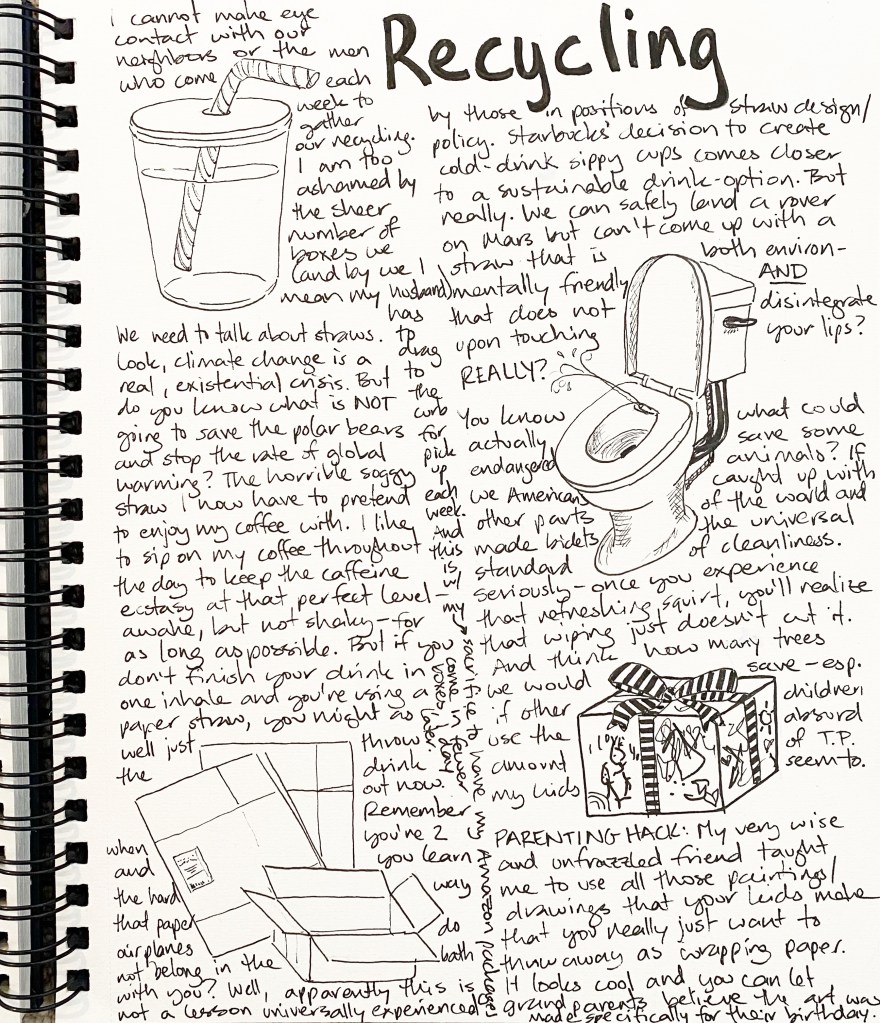 Recycling
I cannot make eye
contact with our
neighbors or the men
who come each
week to
gather
our recycling.
I am too
ashamed by
the sheer
number of
boxes we
(and by we I
mean my husband)
has
to
drag
to
the
curb
for
pick
up
each
week.
And
this
is,
w/
my
sacrifice to have my Amazon packages
come in fewer
boxes 1 day
later.
We need to talk about straws.
Look, climate change is a
real, existential crisis. But
do you know what is NOT
going to save the polar bears
and stop the rate of global
warming? The horrible soggy
straw I now have to pretend
to enjoy my coffee with. I like
to sip on my coffee throughout
the day to keep the caffeine
ecstasy at that perfect level—
awake, but not shaky—for
as long as possible. But if you
don't finish your drink in
one inhale and you're using a
paper straw, you might as
well just throw
the drink
out now.
Remember
when you're 2
and you learn
the hard way
that paper
airplanes do
not belong in the bath
with you? Well, apparently this is
not a lesson universally experienced
by those in positions of straw design/
policy. Starbucks' decision to create
cold-drink sippy cups comes closer
to a sustainable drink-option. But
really. We can safely land a rover
on Mars but can't come up with a
straw that is both environ-
mentally friendly AND
that does not disintegrate
upon touching your lips?
REALLY?
You know what could
actually save some
endangered animals? If
we Americans caught up with
other parts of the world and
made bidets the universal
standard of cleanliness.
seriously—once you experience
that refreshing squirt, you'll realize
that wiping just doesn't cut it.
And think how many trees
we would save—esp.
if other children
use the absurd
amount of T.P.
my kids seem to.
I LOVE
PARENTING HACK: My very wise
and unfrazzled friend taught
me to use all those paintings/
drawings that your kids make
that you really just want to
throw away as wrapping paper.
It looks cool and you can let
grandparents believe the art was
made specifically for their birthday.